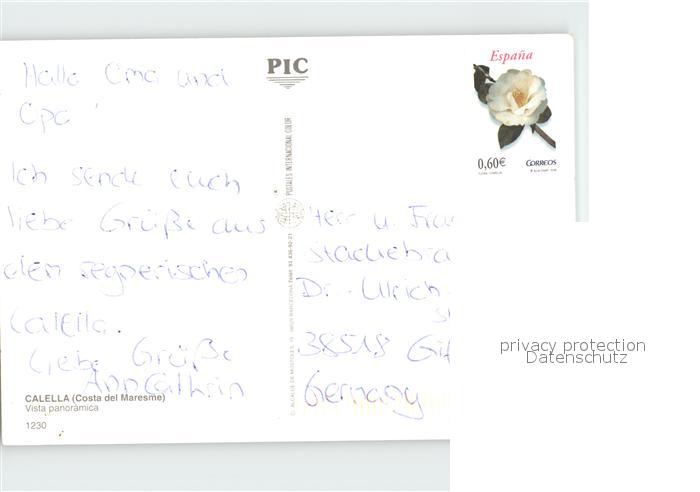 Hallo Oma und
Opa!
Ich sende euch
liebe Grüße aus
dem regnerischen
Calella.
Liebe Grüße
AnnCathrin
CALELLA (Costa del Maresme)
Vista panorámica
1230
PIC
POSTALES INTERNACIONAL COLOR
España
0,60€
CORREOS
Herr u. Fra
Dr.-Ulrich-
38518 Gif
Germany
privacy protection
Datenschutz